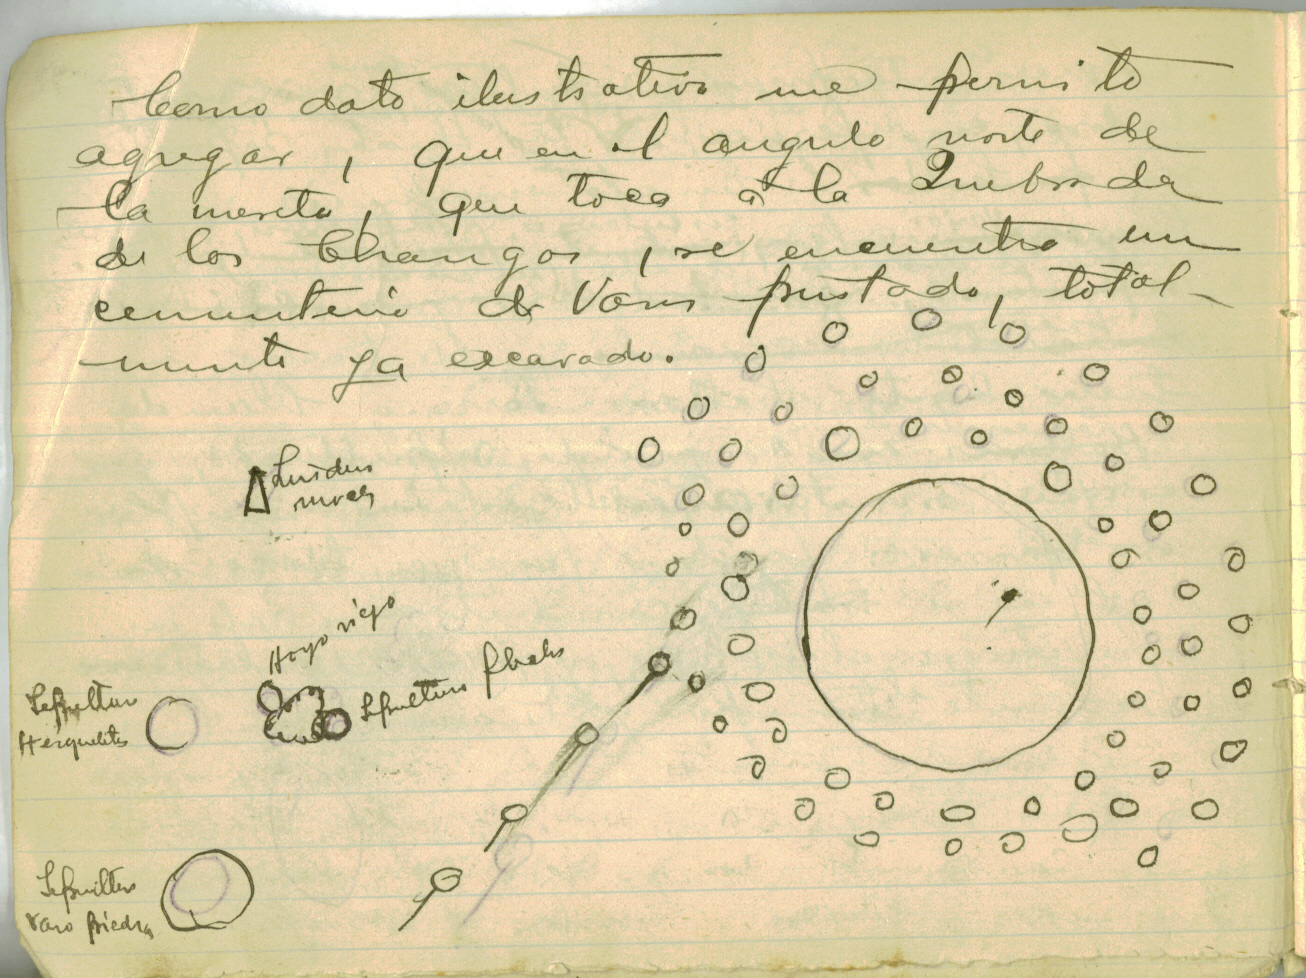 Como dato ilustrativo me permito
agregar, que en el angulo norte de
la meseta, que toca a la Quebrada
de los Changos, se encuentra un
cementerio de Vaso pintado, total-
mente ya excavado.
Hoyo viejo
Sepultura
Sepultura
Sepultura
Vaso piedra